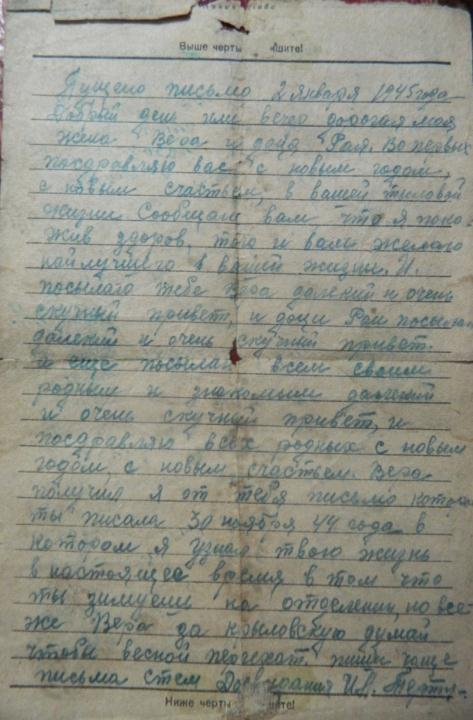 Выше черты шите!
Пущено письмо 2 января 1945 года
Добрый ден или вечер дорогая моя
жена Вера и доца Рая. Во первых
поздравляю вас с новым годом
с новым счастьем, в вашей тыловой
жизни Сообщаю вам что я пока
жив здоров, того и вам желаю
найлучшего в вашей жизни. И
посылаю тебе Вера далекий и очень
скучный привет, и доци Раи посылаю
далекий и очень скучный привет.
и еще посылаю всем своим
родным и знакомым далекий
и очень скучный привет, и
поздравляю всех родных с новым
годом, с новым счастьем. Вера
получил я от тебя письмо которо
ты писала 30 ноября 44 года в
котором я узнал твою жизнь
в настоящее время в том что
ты зимуеш на отделении, но все
же Вера да крыловскую думай
чтобы весной переехат. пиши чаще
письма стем Досвидания
Ниже черты шите!